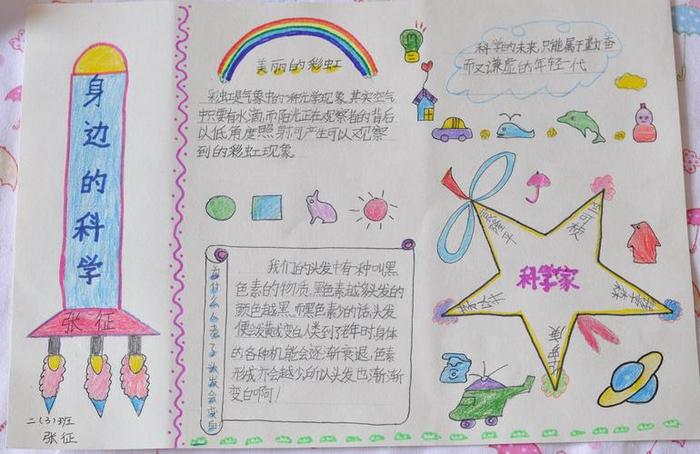 身边的科学
张征
二(3)班
张征
美丽的彩虹
彩虹是气象中的一种光学现象,其实空气
中只要有水滴,而阳光正在观察者的背后
以低角度照射,可产生可以观察
到的彩虹现象
为什么人老了头发会变白
我们的头发中有一种叫黑
色素的物质,黑色素越多头发的
颜色越黑,而黑色素少的话头发
便会发黄或变白人类到了老年时,身体
的各种机能会逐渐衰退,色素
形成亦会越少,所以头发也渐渐
变白啊!
科学的未来,只能属于勤奋
而又谦虚的年轻一代
科学家